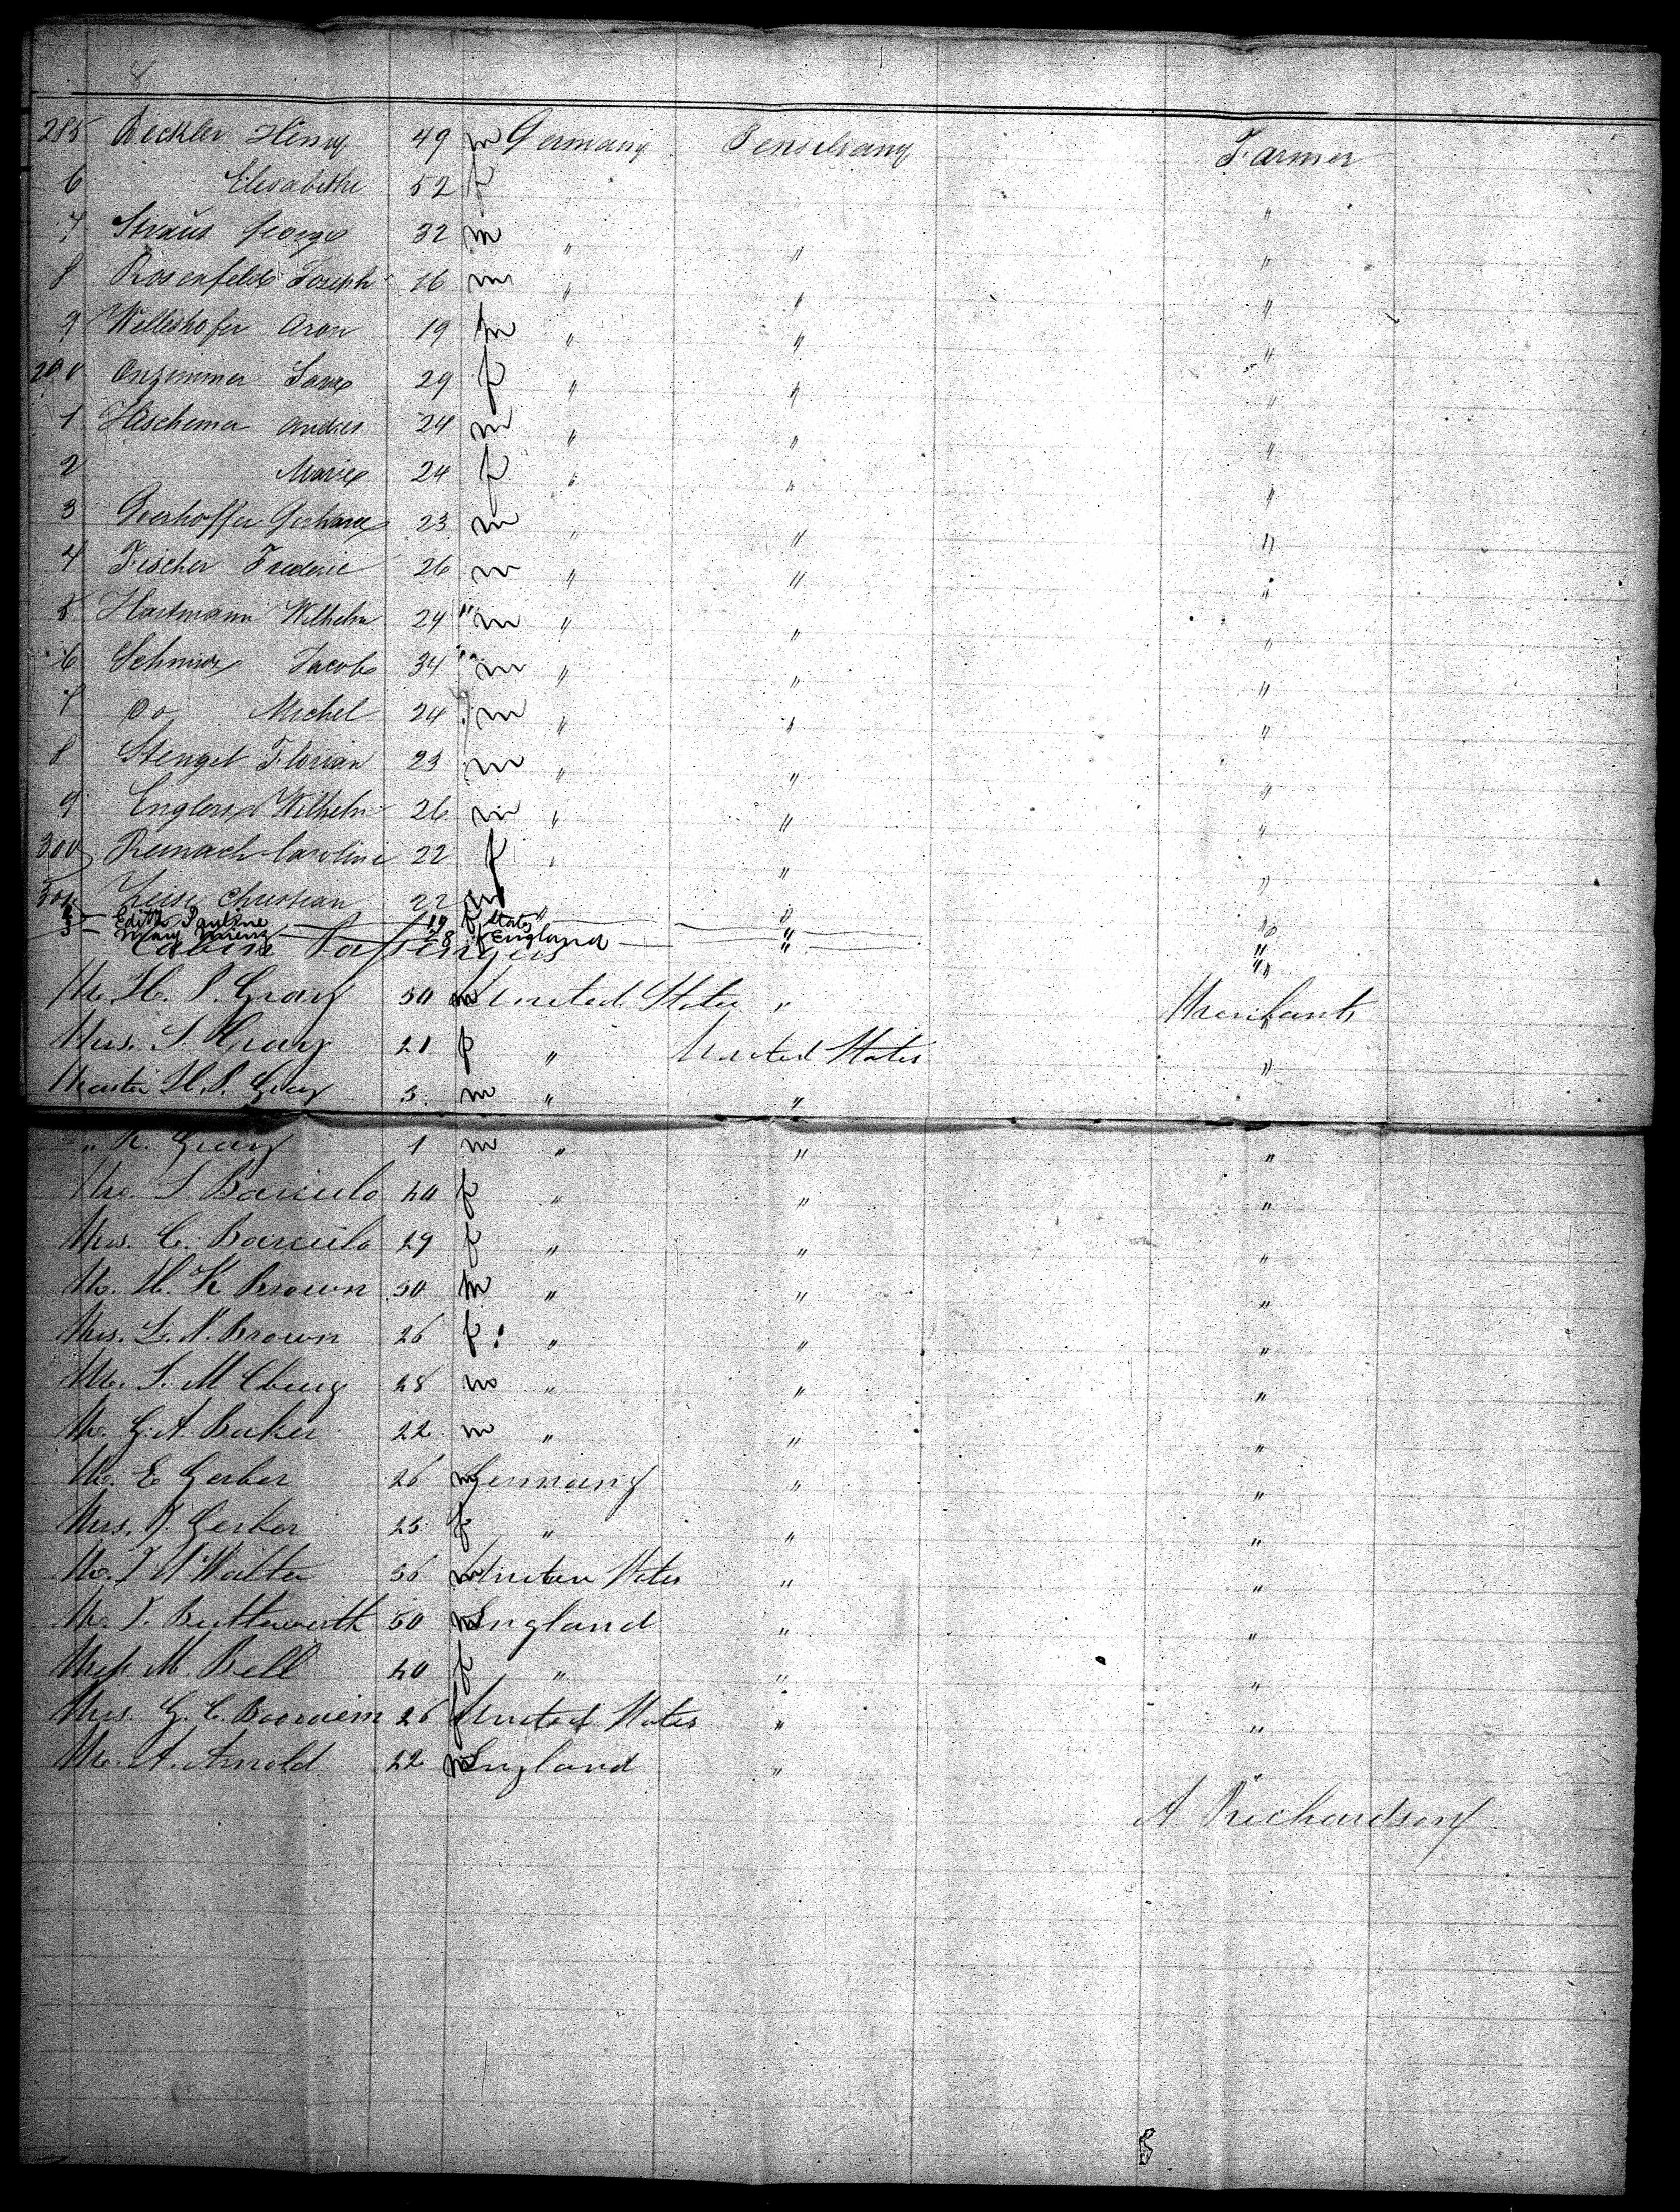 8
285 Beckler Henry 49 m Germany Penselvany Farmer
6 Elisabethe 52 f "
7 Straus George 32 m " " "
8 Rosenfeld Joseph 16 m " " "
9 Welleshofer Aron 19 m " " "
290 29 f " " "
1 Hischemer Andres 24 m " " "
2 Marie 24 f " " "
3 Gerhard 23 m " " "
4 Fischer Frederic 26 m " " "
5 Hartmann Wilhelm 24 m " " "
6 Jacob 34 m " " "
7 Do Michel 24 m " " "
8 Stengel Florian 23 m " " "
9 Wilhelm 26 m " " "
300 Reinach Caroline 22 f " " "
301 Christian 22 m " " "
2 Edith Pauline 19 f States " "
3 Mary 28 f England " "
Cabin Passengers
Mr. H. P. Gray 50 m United States " Merchant
Mrs. S. Gray 21 f " United States "
Master H. P. Gray 3 m " "
" R. Gray 1 m " " "
S Barculo 40 f " " "
C. Barculo 29 f " " "
Mr. H. K Brown 50 m " " "
Mrs. L. K. Brown 26 f " " "
Mr. S. M 28 m " " "
Mr. G. A. Baker 22 m " " "
Mr. E Gerber 26 m Germany " "
Mrs. J. Gerber 25 f " " "
Mr. T U Walter 36 m United States " "
Mr. J. Butterworth 50 m England " "
Miss M. Bell 40 f " " "
Mrs. G. C. 26 f United States " "
Mr. A. Arnold 22 m England " "
A Richardson